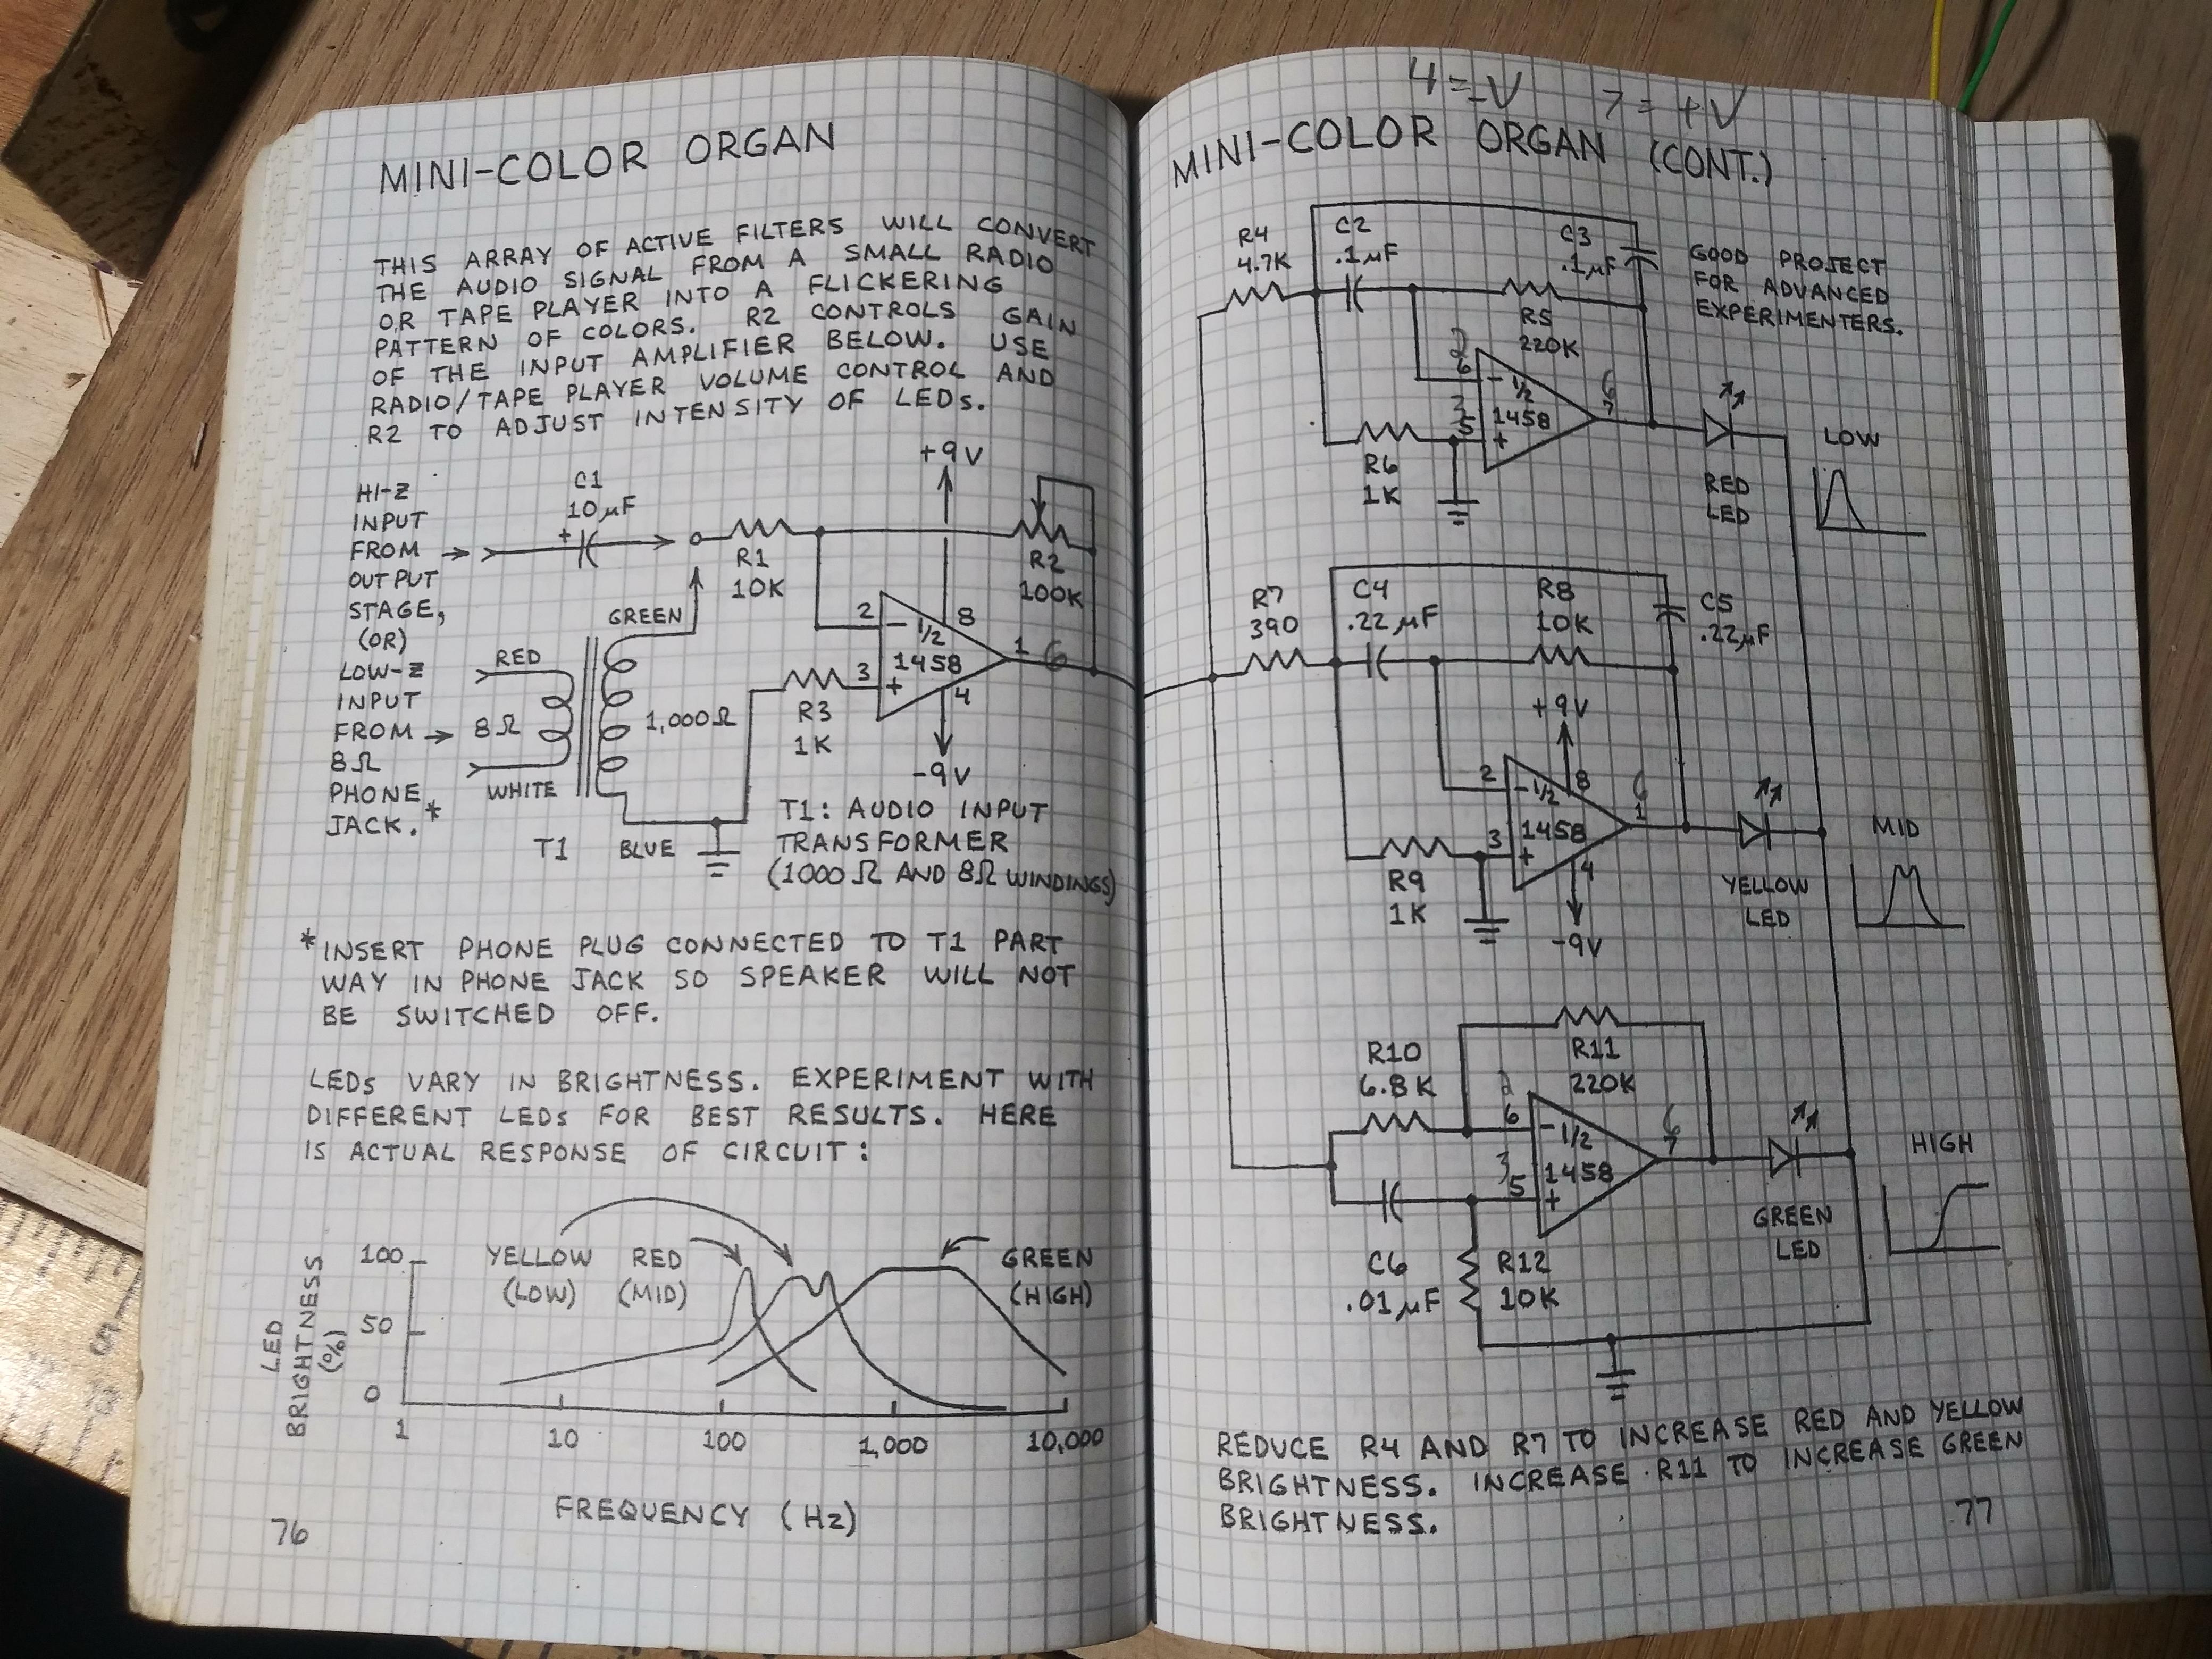 MINI-COLOR ORGAN
THIS ARRAY OF ACTIVE FILTERS WILL CONVERT
THE AUDIO SIGNAL FROM A SMALL RADIO
OR TAPE PLAYER INTO A FLICKERING
PATTERN OF COLORS. R2 CONTROLS GAIN
OF THE INPUT AMPLIFIER BELOW. USE
RADIO/TAPE PLAYER VOLUME CONTROL AND
R2 TO ADJUST INTENSITY OF LEDs.
HI-Z
INPUT
FROM →
OUTPUT
STAGE,
(OR)
LOW-Z
INPUT
FROM →
8Ω
PHONE
JACK.*
C1
10µF
+
R1
10K
+9V
R2
100K
GREEN
RED
8Ω
WHITE
1,000Ω
T1
BLUE
2
−
1/2
1458
8
1
6
3
+
4
R3
1K
-9V
T1: AUDIO INPUT
TRANSFORMER
(1000Ω AND 8Ω WINDINGS)
*INSERT PHONE PLUG CONNECTED TO T1 PART
WAY IN PHONE JACK SO SPEAKER WILL NOT
BE SWITCHED OFF.
LEDs VARY IN BRIGHTNESS. EXPERIMENT WITH
DIFFERENT LEDs FOR BEST RESULTS. HERE
IS ACTUAL RESPONSE OF CIRCUIT:
LED
BRIGHTNESS
(%)
100
50
0
YELLOW
(LOW)
RED
(MID)
GREEN
(HIGH)
1 10 100 1,000 10,000
FREQUENCY (Hz)
76
4 = -V 7 = +V
MINI-COLOR ORGAN (CONT.)
R4
4.7K
C2
.1µF
C3
.1µF
GOOD PROJECT
FOR ADVANCED
EXPERIMENTERS.
R5
220K
2
6
−
1/2
1458
6
7
3
5
+
R6
1K
RED
LED
LOW
R7
390
C4
.22µF
R8
10K
C5
.22µF
+9V
2
−
1/2
1458
8
6
1
3
+
4
R9
1K
-9V
YELLOW
LED
MID
R10
6.8K
R11
220K
2
6
−
1/2
1458
6
7
3
5
+
C6
.01µF
R12
10K
GREEN
LED
HIGH
REDUCE R4 AND R7 TO INCREASE RED AND YELLOW
BRIGHTNESS. INCREASE R11 TO INCREASE GREEN
BRIGHTNESS.
77